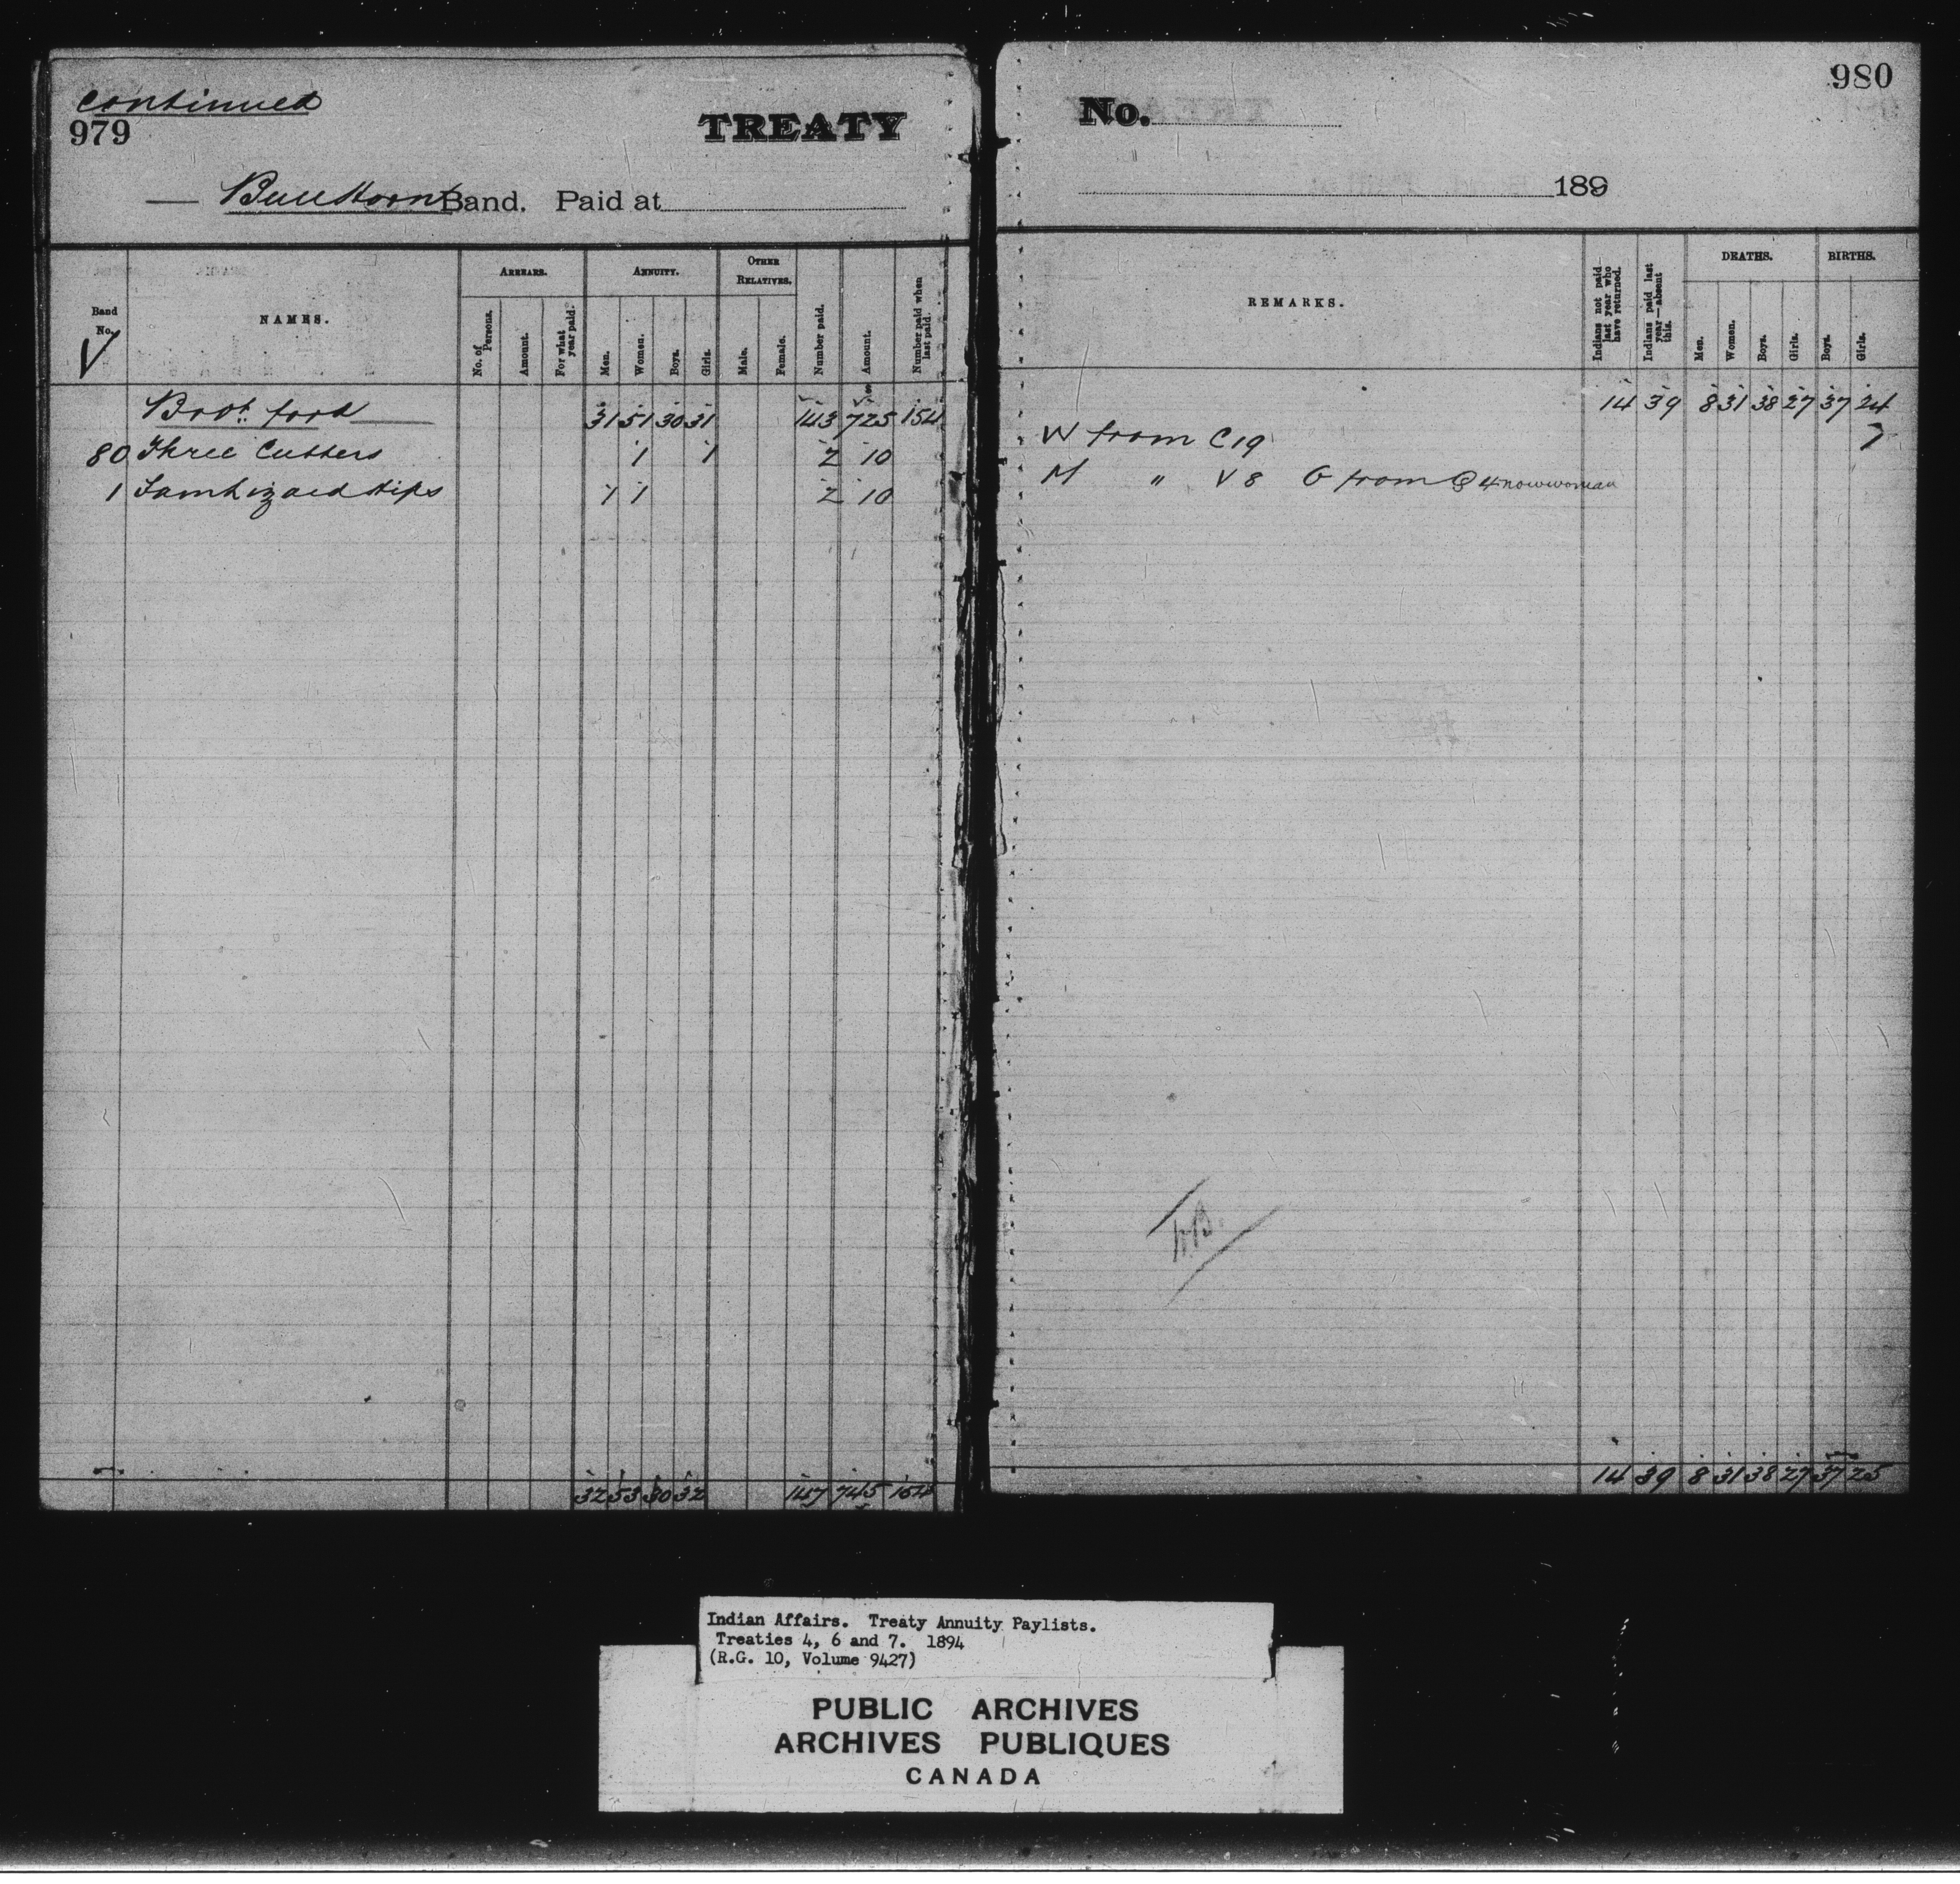 continued
979
TREATY
No.
980
Bull Horn's Band. Paid at
189
Band No.
NAMES.
ARREARS.
No. of Persons.
Amount.
For what year paid.
ANNUITY.
Men.
Women.
Boys.
Girls.
OTHER RELATIVES.
Male.
Female.
Number paid.
Amount.
Number paid when last paid.
REMARKS.
Indians not paid last year who have returned.
Indians paid last year—absent this.
DEATHS.
Men.
Women.
Boys.
Girls.
BIRTHS.
Boys.
Girls.
V
$
Brot. ford 31 51 30 31 143 725 154 14 39 8 31 38 27 37 24
80 Three Cutters 1 1 2 10 W from C 19 1
1 1 1 2 10 M " V 8 G from 4 now woman
32 53 30 32 147 745 154 14 39 8 31 38 27 37 25
Indian Affairs. Treaty Annuity Paylists.
Treaties 4, 6 and 7. 1894
(R.G. 10, Volume 9427)
PUBLIC ARCHIVES
ARCHIVES PUBLIQUES
CANADA